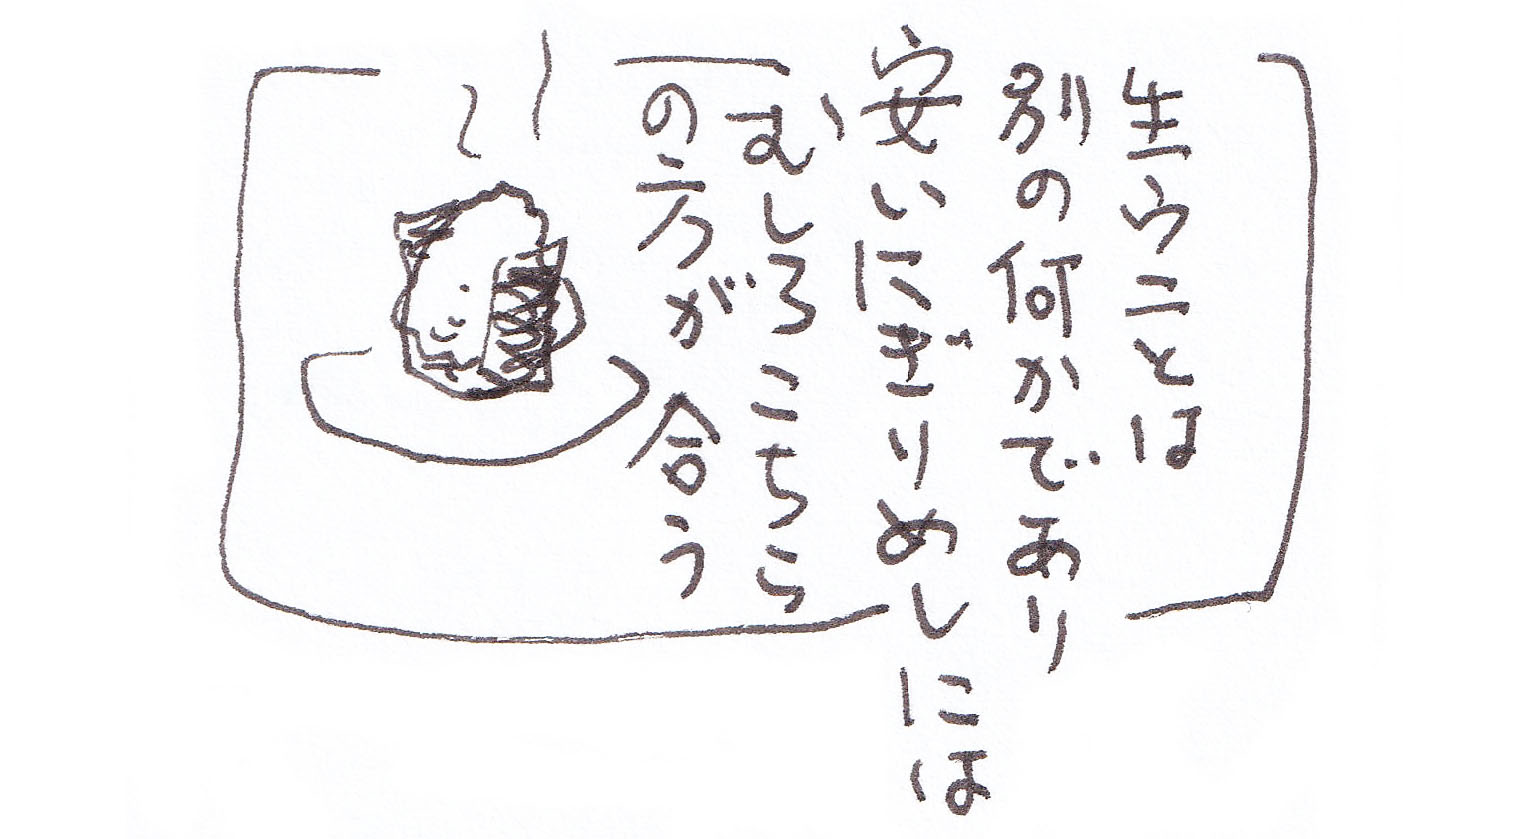 生ウニとは
別の何かであり
安いにぎりめしには
むしろこちら
の方が合う